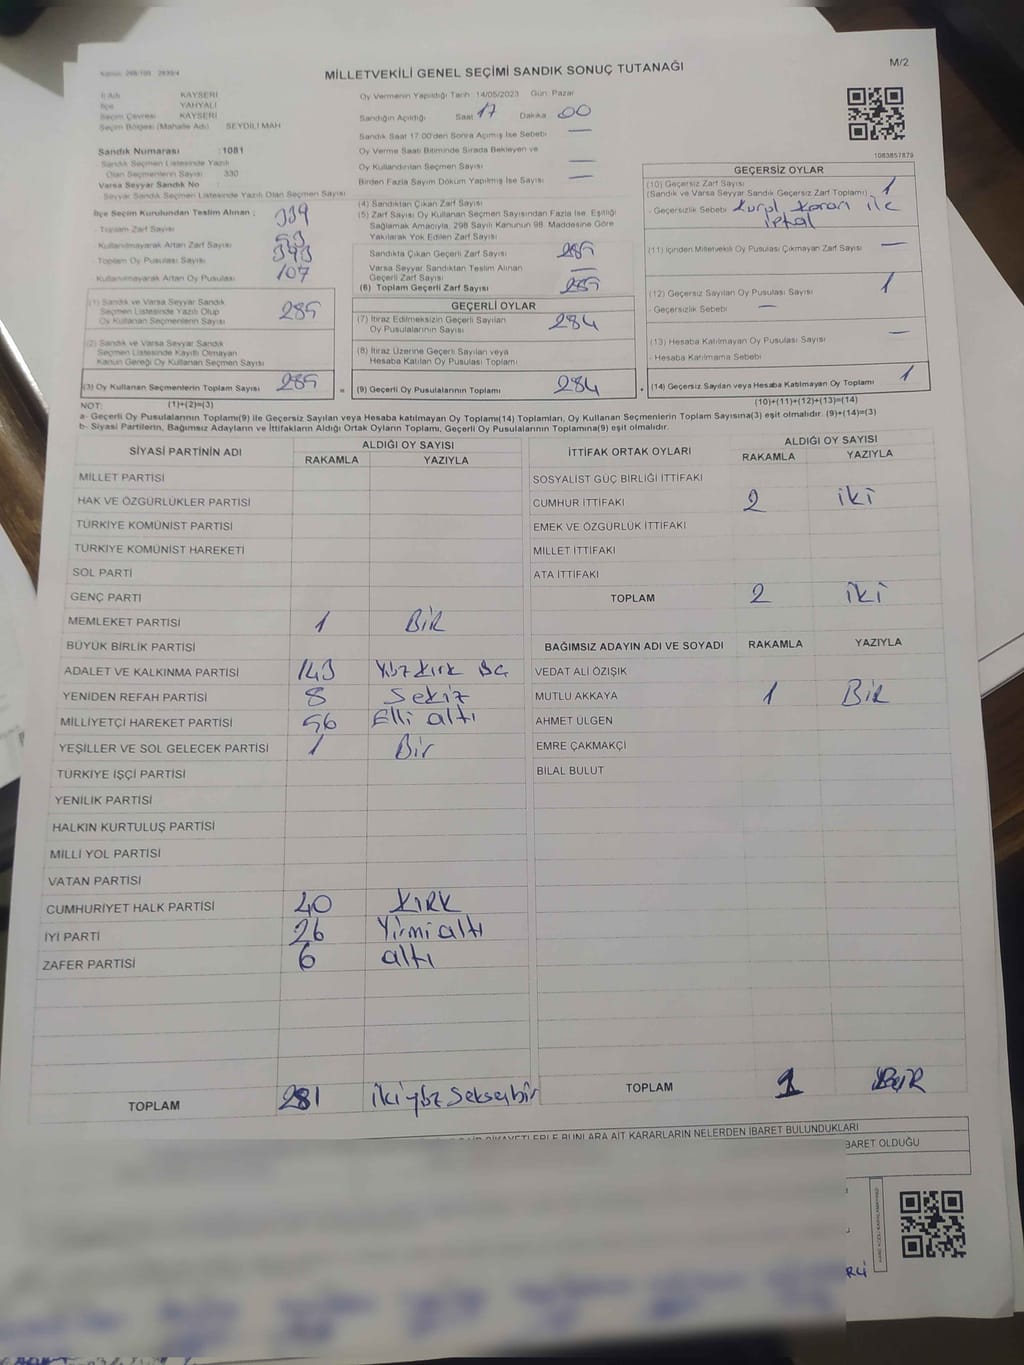 MİLLETVEKİLİ GENEL SEÇİMİ SANDIK SONUÇ TUTANAĞI
M/2
İl Adı KAYSERİ
İlçe YAHYALI
Seçim Çevresi KAYSERİ
Seçim Bölgesi (Mahalle Adı) SEYDİLİ MAH
Sandık Numarası : 1081
Sandık Seçmen Listesinde Yazılı
Olan Seçmen Sayısı 330
Varsa Seyyar Sandık No :
Seyyar Sandık Seçmen Listesinde Yazılı Olan Seçmen Sayısı
İlçe Seçim Kurulundan Teslim Alınan :
- Toplam Zarf Sayısı 339
- Kullanılmayarak Artan Zarf Sayısı
- Toplam Oy Pusulası Sayısı
- Kullanılmayarak Artan Oy Pusulası 107
(1) Sandık ve Varsa Seyyar Sandık
Seçmen Listesinde Yazılı Olup
Oy Kullanan Seçmenlerin Sayısı 285
(2) Sandık ve Varsa Seyyar Sandık
Seçmen Listesinde Kayıtlı Olmayan
Kanun Gereği Oy Kullanan Seçmen Sayısı
(3) Oy Kullanan Seçmenlerin Toplam Sayısı 285
Oy Vermenin Yapıldığı Tarih :14/05/2023 Gün: Pazar
Sandığın Açıldığı Saat 17 Dakika 00
Sandık Saat 17.00'den Sonra Açılmış İse Sebebi —
Oy Verme Saati Bitiminde Sırada Bekleyen ve
Oy Kullandırılan Seçmen Sayısı —
Birden Fazla Sayım Döküm Yapılmış İse Sayısı —
(4) Sandıktan Çıkan Zarf Sayısı
(5) Zarf Sayısı Oy Kullanan Seçmen Sayısından Fazla İse, Eşitliği
Sağlamak Amacıyla, 298 Sayılı Kanunun 98. Maddesine Göre
Yakılarak Yok Edilen Zarf Sayısı
Sandıkta Çıkan Geçerli Zarf Sayısı 285
Varsa Seyyar Sandıktan Teslim Alınan
Geçerli Zarf Sayısı —
(6) Toplam Geçerli Zarf Sayısı 285
GEÇERLİ OYLAR
(7) İtiraz Edilmeksizin Geçerli Sayılan
Oy Pusulalarının Sayısı 284
(8) İtiraz Üzerine Geçerli Sayılan veya
Hesaba Katılan Oy Pusulası Toplamı
= (9) Geçerli Oy Pusulalarının Toplamı 284
1083857879
GEÇERSİZ OYLAR
(10) Geçersiz Zarf Sayısı 1
(Sandık ve Varsa Seyyar Sandık Geçersiz Zarf Toplamı)
- Geçersizlik Sebebi Kurul Kararı ile
iptal
(11) İçinden Milletvekili Oy Pusulası Çıkmayan Zarf Sayısı —
(12) Geçersiz Sayılan Oy Pusulası Sayısı 1
- Geçersizlik Sebebi —
(13) Hesaba Katılmayan Oy Pusulası Sayısı —
- Hesaba Katılmama Sebebi
+ (14) Geçersiz Sayılan veya Hesaba Katılmayan Oy Toplamı 1
NOT: (1)+(2)=(3) (10)+(11)+(12)+(13)=(14)
a- Geçerli Oy Pusulalarının Toplamı(9) ile Geçersiz Sayılan veya Hesaba katılmayan Oy Toplamı(14) Toplamları, Oy Kullanan Seçmenlerin Toplam Sayısına(3) eşit olmalıdır. (9)+(14)=(3)
b- Siyasi Partilerin, Bağımsız Adayların ve İttifakların Aldığı Ortak Oyların Toplamı, Geçerli Oy Pusulalarının Toplamına(9) eşit olmalıdır.
SİYASİ PARTİNİN ADI ALDIĞI OY SAYISI
RAKAMLA YAZIYLA
MİLLET PARTİSİ
HAK VE ÖZGÜRLÜKLER PARTİSİ
TÜRKİYE KOMÜNİST PARTİSİ
TÜRKİYE KOMÜNİST HAREKETİ
SOL PARTİ
GENÇ PARTİ
MEMLEKET PARTİSİ 1 BİR
BÜYÜK BİRLİK PARTİSİ
ADALET VE KALKINMA PARTİSİ 143 Yüz Kırk Üç
YENİDEN REFAH PARTİSİ 8 Sekiz
MİLLİYETÇİ HAREKET PARTİSİ 56 Elli altı
YEŞİLLER VE SOL GELECEK PARTİSİ 1 Bir
TÜRKİYE İŞÇİ PARTİSİ
YENİLİK PARTİSİ
HALKIN KURTULUŞ PARTİSİ
MİLLİ YOL PARTİSİ
VATAN PARTİSİ
CUMHURİYET HALK PARTİSİ 40 KIRK
İYİ PARTİ 26 Yirmi altı
ZAFER PARTİSİ 6 altı
TOPLAM 281 ikiyüz seksenbir
İTTİFAK ORTAK OYLARI ALDIĞI OY SAYISI
RAKAMLA YAZIYLA
SOSYALİST GÜÇ BİRLİĞİ İTTİFAKI
CUMHUR İTTİFAKI 2 iki
EMEK VE ÖZGÜRLÜK İTTİFAKI
MİLLET İTTİFAKI
ATA İTTİFAKI
TOPLAM 2 iki
BAĞIMSIZ ADAYIN ADI VE SOYADI RAKAMLA YAZIYLA
VEDAT ALİ ÖZIŞIK
MUTLU AKKAYA 1 BİR
AHMET ÜLGEN
EMRE ÇAKMAKÇİ
BİLAL BULUT
TOPLAM 1 BİR
BUNLARA AİT KARARLARIN NELERDEN İBARET BULUNDUKLARI
İBARET OLDUĞU